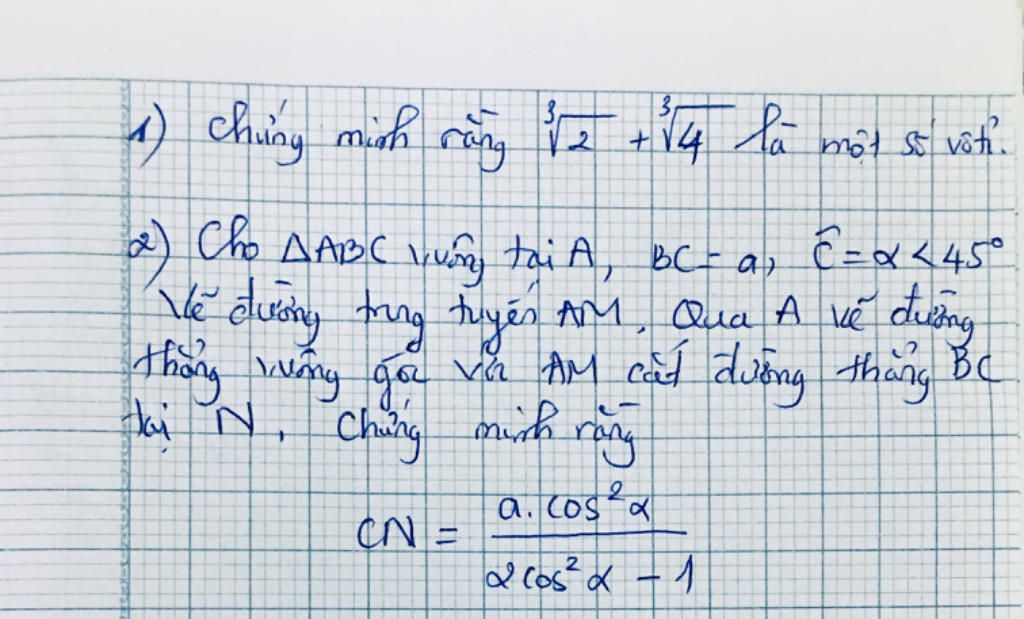 1) Chứng minh rằng ∛2 + ∛4 là một số vô tỉ.
2) Cho ΔABC vuông tại A, BC = a, Ĉ = α < 45°
Vẽ đường trung tuyến AM. Qua A vẽ đường
thẳng vuông góc với AM cắt đường thẳng BC
tại N. Chứng minh rằng
CN = a.cos²α / (2cos²α - 1)